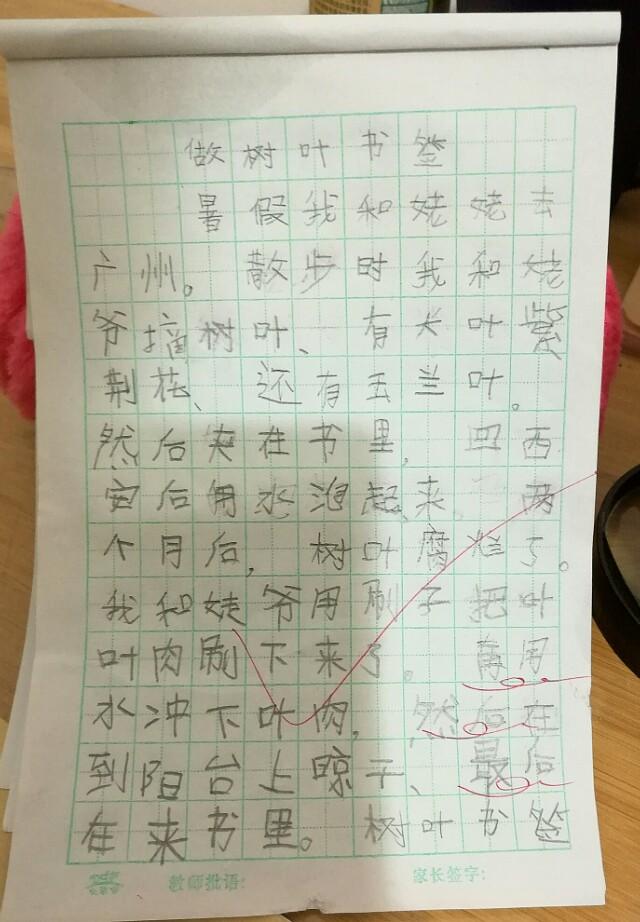 做树叶书签
暑假我和姥姥去
广州。散步时我和姥
爷摘树叶、有大叶紫
荆花、还有玉兰叶。
然后夹在书里,回西
安后用水泡起来。两
个月后,树叶腐烂了。
我和姥爷用刷子把叶
叶肉刷下来了。再用
水冲下叶肉,然后在
到阳台上晾干、最后
在来书里。树叶书签
教师批语:
家长签字: